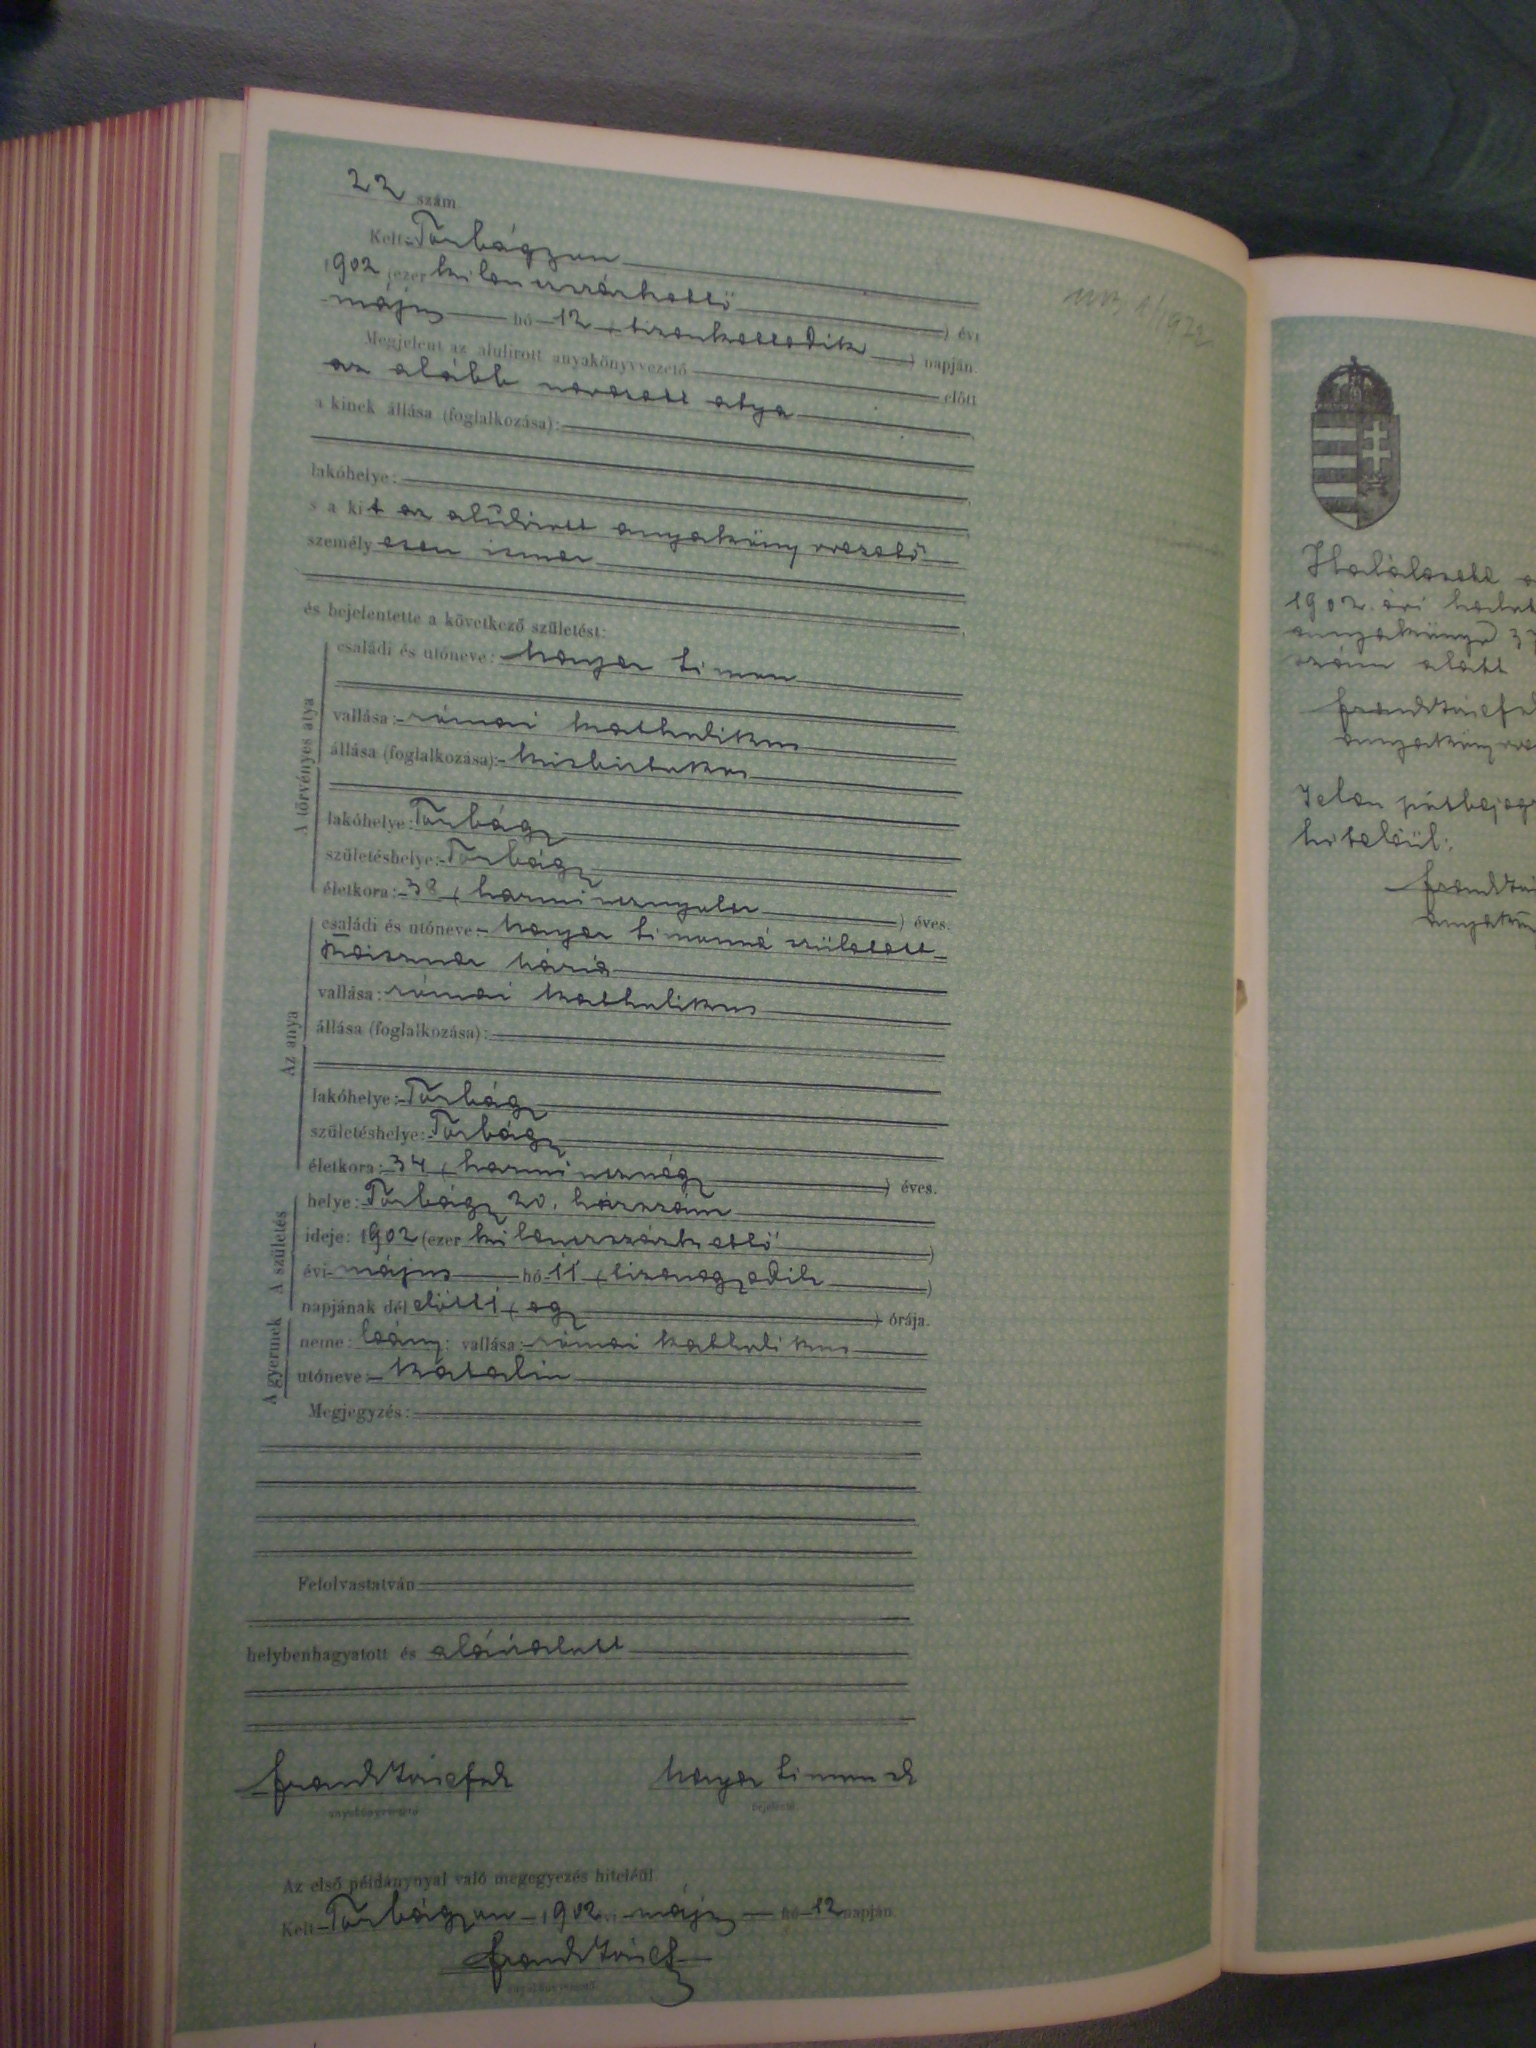 22 szám
Kelt Törbágyon
1902 (ezer kilencszázkettő ) évi
május hó 12 (tizenkettedik ) napján.
Megjelent az alulirott anyakönyvvezető előtt
az alább nevezett atya
a kinek állása (foglalkozása):
lakóhelye:
s a kit az alulirott anyakönyvvezető
személyesen ismer
és bejelentette a következő születést:
A törvényes atya
családi és utóneve: Simon
vallása: római katholikus
állása (foglalkozása): kisbirtokos
lakóhelye: Törbágy
születéshelye: Törbágy
életkora: 38 (harmincznyolcz ) éves.
Az anya
családi és utóneve: Simonné született
Mária
vallása: római katholikus
állása (foglalkozása):
lakóhelye: Törbágy
születéshelye: Törbágy
életkora: 34 (harmincznégy ) éves.
A születés
helye: Törbágy 20. házszám
ideje: 1902 (ezer kilenczszázkettő )
évi május hó 11 (tizenegyedik )
napjának dél előtti (egy ) órája.
A gyermek
neme: leány; vallása: római katholikus
utóneve: Katalin
Megjegyzés:
Felolvastatván
helybenhagyatott és aláiratott
Frank József
anyakönyvvezető
Simon
bejelentő
Az első példánynyal való megegyezés hiteléül.
Kelt Törbágyon 1902 évi május hó 12 napján
Frank József
anyakönyvvezető
Halálesete
1902. évi
37
szám alatt
Frank József
Jelen
hiteléül:
Frank